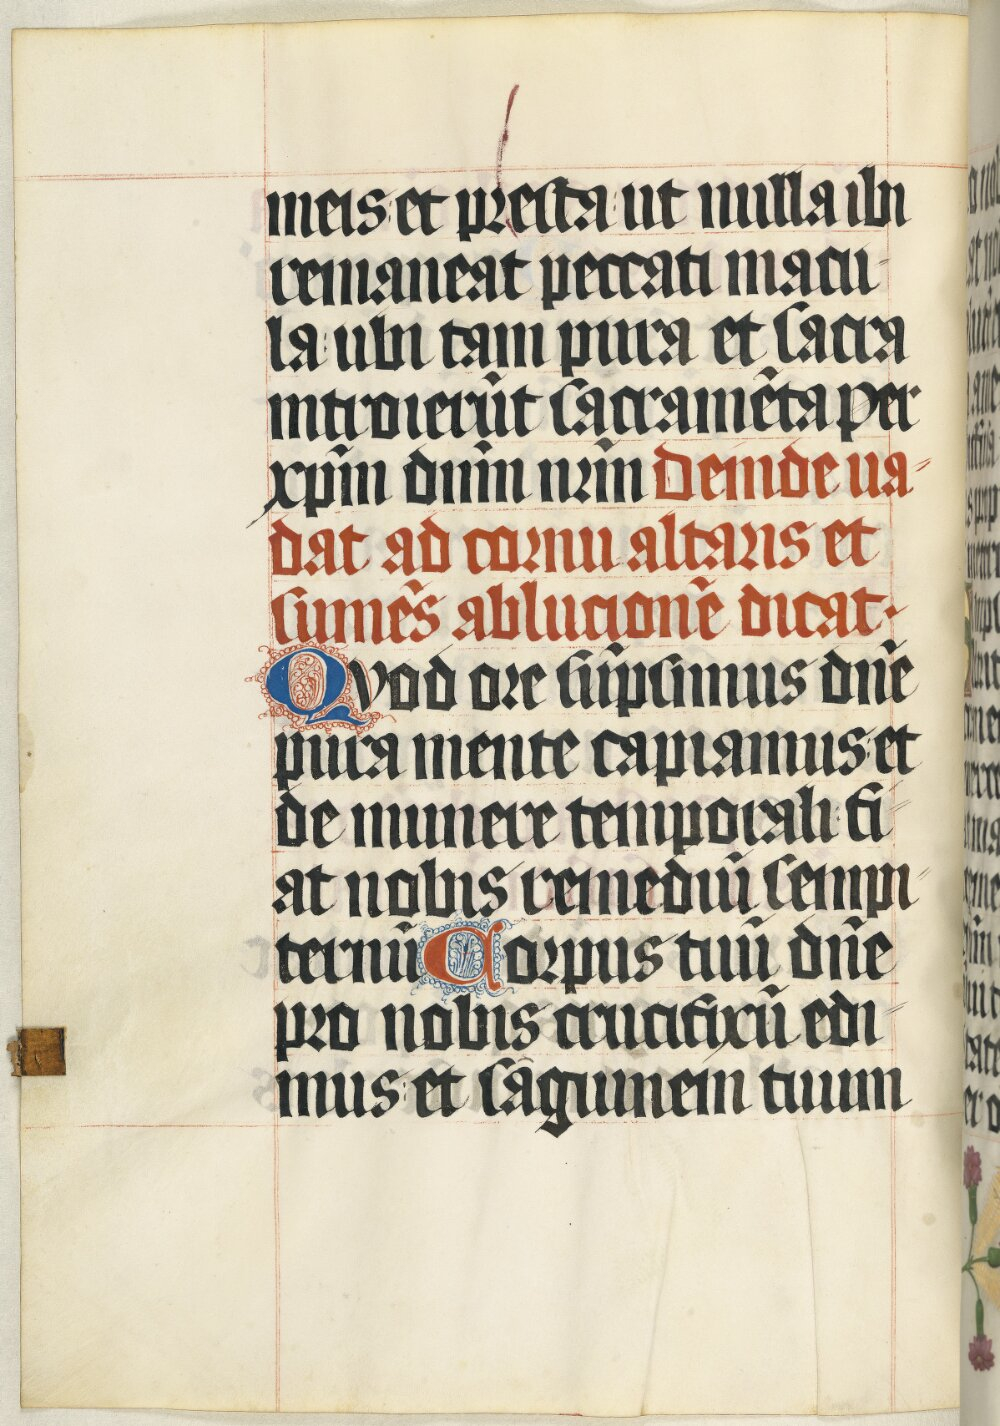 meis et presta ut nulla ibi
remaneat peccati macu-
la ubi tam pura et sacra
introierūt sacramēta per
xp̄m dn̄m nr̄m Deinde ua-
dat ad cornu altaris et
sumēs ablucionē dicat.
Quod ore sūpsimus dn̄e
pura mente capiamus et
de munere temporali fi-
at nobis remediū sempi-
ternū Corpus tuū dn̄e
pro nobis crucifixū edi-
mus et sāguinem tuum